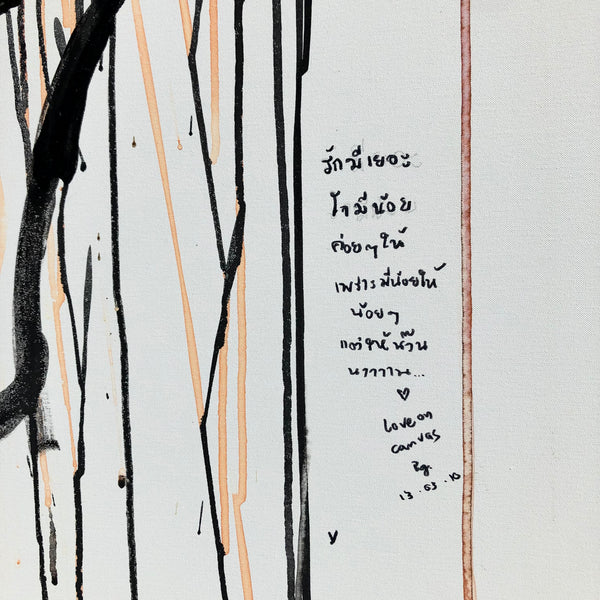 รักมีเยอะ
ใจมีน้อย
ค่อยๆให้
เพราะมีน้อยให้
น้อยๆ
แต่ให้น๊าน
นาาาาน...
♡
Love on
canvas
By.
13.03.10